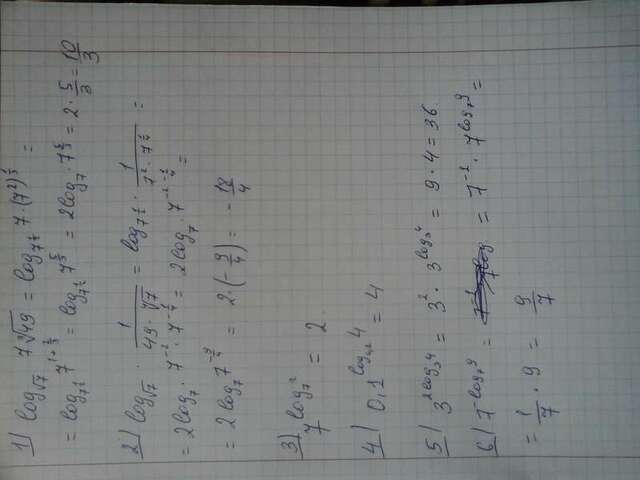 1) log_{√7} 7∛49 = log_{7^{1/2}} 7·(7²)^{1/3} =
= log_{7^{1/2}} 7^{1+2/3} = log_{7^{1/2}} 7^{5/3} = 2log₇ 7^{5/3} = 2·5/3 = 10/3
2) log_{√7} · 1/(49·∜7) = log_{7^{1/2}} · 1/(7²·7^{1/4}) =
= 2log₇ · 7^{-2}·7^{-1/4} = 2log₇·7^{-2-1/4} =
= 2log₇ 7^{-9/4} = 2·(-9/4) = -18/4
3) 7^{log₇2} = 2.
4) 0,1^{log_{0,1}4} = 4
5) 3^{2log₃4} = 3²·3^{log₃4} = 9·4 = 36
6) 7^{-log₇9} = 7^{-1}·7^{log₇9} =
= 1/7·9 = 9/7